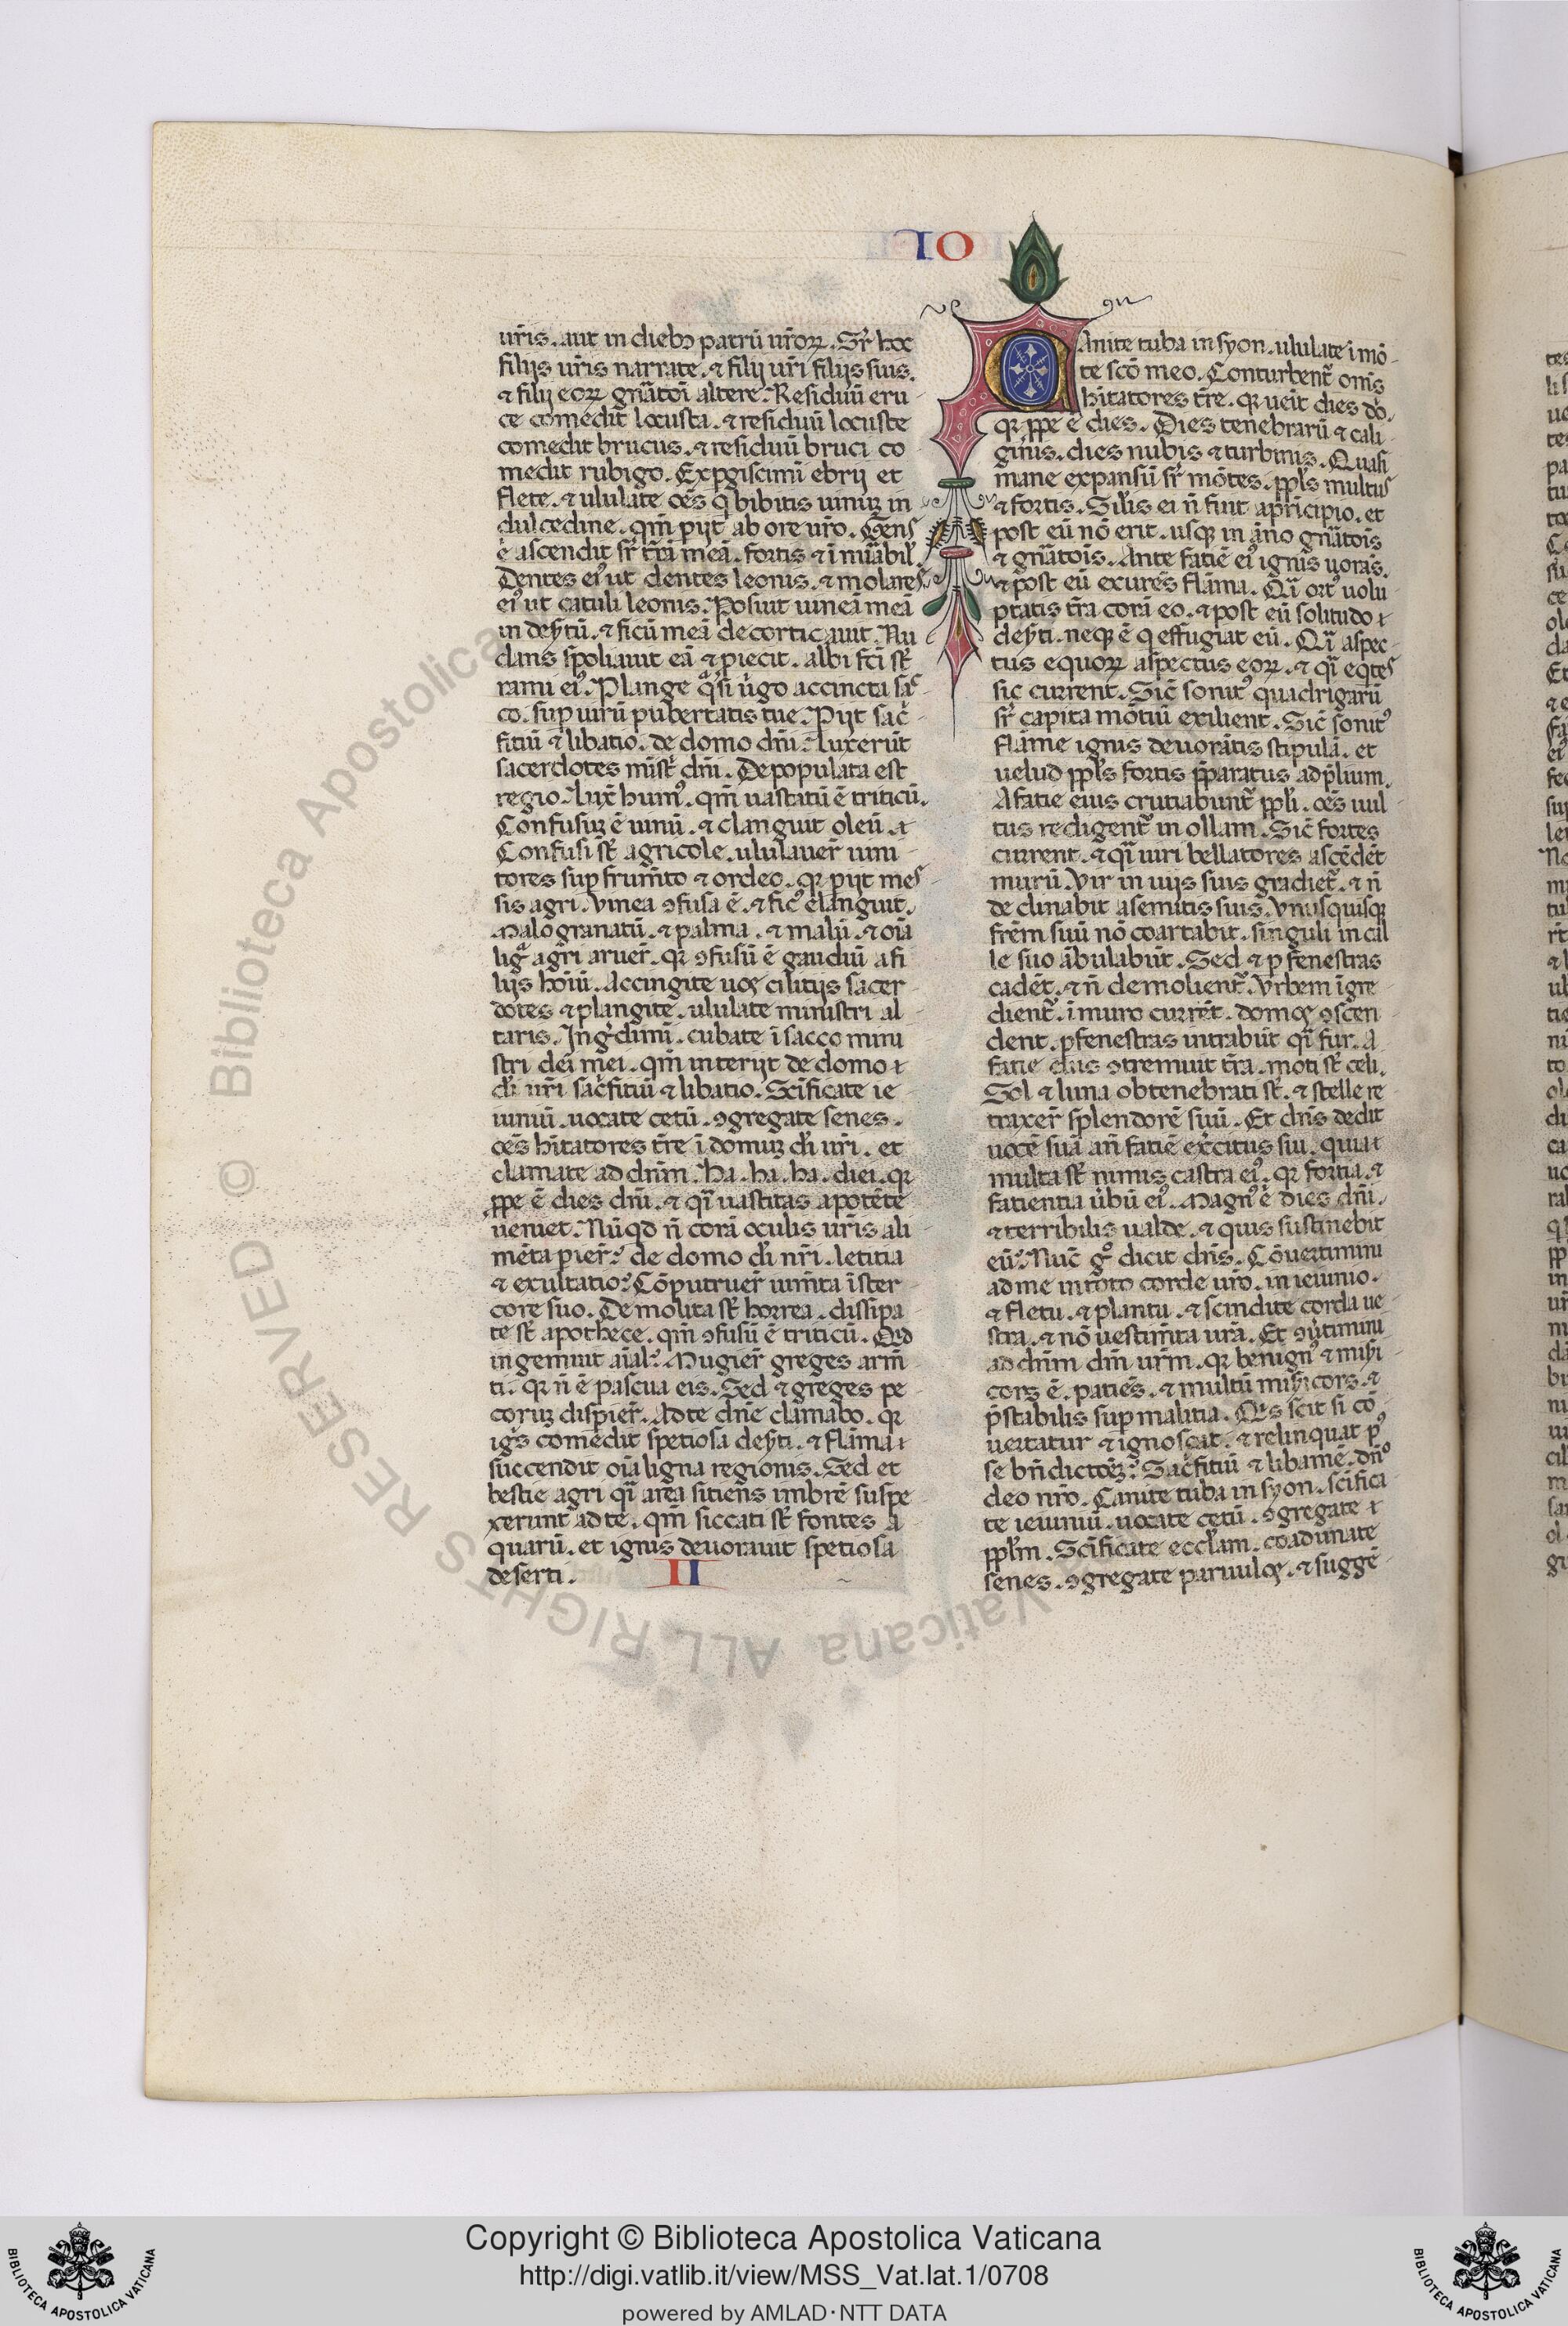 IO
ur̃is. aut in diebꝫ patrũ ur̃oꝝ. Sr̃ hoc
filijs ur̃is narrate. ⁊ filij ur̃i filijs suis.
⁊ filij eoꝝ gñatoĩ altere. Residuũ eru
ce comedit locusta. ⁊ residuũ locuste
comedit brucus. ⁊ residuũ bruci co
medit rubigo. Expgiscimĩ ebrij et
flete. ⁊ ululate oẽs q̇ bibitis uinuꝫ in
dulcedine. qm̃ pijt ab ore ur̃o. Gens
ẽ ascendit sr̃ tr̃ã meã. fortis ⁊ ĩnũabil᷒.
Dentes eiꝰ ut dentes leonis. ⁊ molares
eiꝰ ut catuli leonis. Posuit uineã meã
in deẜtũ. ⁊ ficũ meã decorticauit. Nu
dans spoliauit eã ⁊ piecit. albi fc̃i st̃
rami eiꝰ. Plange q̃si ũgo accincta sac
co. sup uirũ pubertatis tue. Pijt sac̃
fitiũ ⁊ libatio. de domo dñi. Luxerũt
sacerdotes minist̃ dñi. Depopulata est
regio. Lux̃ humꝰ. qm̃ uastatũ ẽ triticũ.
Confusuꝫ ẽ uinũ. ⁊ elanguit oleũ. ⁊
Confusi st̃ agricole. ululauer̃ uini
tores sup frum̃to ⁊ ordeo. qꝛ pijt mes
sis agri. Vinea ꝯfusa ẽ. ⁊ ficꝰ elanguit.
Malogranatũ. ⁊ palma. ⁊ malũ. ⁊ oĩa
lig̃ agri aruer̃. qꝛ ꝯfusũ ẽ gaudiũ a fi
lijs hoĩũ. Accingite uoꝰ cilitijs sacer
dotes ⁊ plangite. ululate ministri al
taris. Ingr̃dimĩ. cubate ĩ sacco mini
stri dei mei. qm̃ interijt de domo ⁊
di ur̃i sac̃fitiũ ⁊ libatio. Scĩficate ie
iuniũ. uocate cetũ. ꝯgregate senes.
oẽs hĩtatores tr̃e ĩ domuꝫ di ur̃i. et
clamate ad dñm. Ha. ha. ha. diei. qꝛ
ꝓpe ẽ dies dñi. ⁊ qĩ uastitas apotẽte
ueniet. Nũqd ñ corã oculis ur̃is ali
mẽta pier̃? de domo di nr̃i. letitia
⁊ exultatio? Cõputruer̃ ium̃ta ĩ ster
core suo. Demolita st̃ horrea. dissipa
te st̃ apothece. qm̃ ꝯfusũ ẽ triticũ. Qid
ingemuit aĩal? Mugier̃ greges arm̃
ti. qꝛ ñ ẽ pascua eis. Sed ⁊ greges pe
coruꝫ dispier̃. Ad te dñe clamabo. qꝛ
igis comedit spetiosa deẜti. ⁊ flãma ⁊
succendit oĩa ligna regionis. Sed et
bestie agri qĩ area sitiens imbrẽ suspe
xerunt ad te. qm̃ siccati st̃ fontes a
quarũ. et ignis deuorauit spetiosa
deserti. II
Canite tuba in syon. ululate ĩ mõ
te scõ meo. Conturbent̃ oñis
hĩtatores tr̃e. qꝛ ueit dies dõ.
qꝛ ꝓpe ẽ dies. Dies tenebrarũ ⁊ cali
ginis. dies nubis ⁊ turbinis. Quasi
mane expansũ sr̃ mõtes. ppl̃s multus
⁊ fortis. Sil̃is ei ñ fuit apricipio. et
post eũ nõ erit. usqꝫ in ãno gñatoĩs
⁊ gñatoĩs. Ante fatiẽ eiꝰ ignis uorãs.
⁊ post eũ exurẽs flãma. Qĩ ortꝰ uolu
ptatis tr̃a corã eo. ⁊ post eũ solitudo ⁊
deẜti. neqꝫ ẽ q effugiat eũ. Qĩ aspec
tus equoꝝ aspectus eoꝝ. ⁊ qĩ eqtes
sic current. Sic̃ sonitꝰ quadrigarũ
sr̃ capita mõtiũ exilient. Sic̃ sonitꝰ
flãme ignis deuorãtis stipulã. et
uelud ppl̃s fortis p̃paratus ad p̃lium.
A fatie eius crutiabunt̃ ppl̃i. oẽs uul
tus redigent̃ in ollam. Sic̃ fortes
current. ⁊ qĩ uiri bellatores ascẽdẽt
murũ. Vir in uijs suis gradiet̃. ⁊ ñ
declinabit a semitis suis. Vnusquisqꝫ
frẽm suũ nõ coartabit. singuli in cal
le suo ãbulabũt. Sed ⁊ p fenestras
cadẽt. ⁊ ñ demolient̃. Vrbem ĩgre
dient̃. ĩ muro currẽt. domoꝰ ꝯscen
dent. p fenestras intrabũt qĩ fur. A
fatie eius ꝯtremuit tr̃a. moti st̃ celi.
Sol ⁊ luna obtenebrati st̃. ⁊ stelle re
traxer̃ splendorẽ suũ. Et dñs dedit
uocẽ suã añ fatiẽ exc̃itus sui. quia ⁊
multa st̃ nimis castra eiꝰ. qꝛ fortia. ⁊
fatientia ũbũ eiꝰ. Magnꝰ ẽ dies dñi.
⁊ terribilis ualde. ⁊ quis sustinebit
eũ? Nũc g̊ dicit dñs. Cõuertimini
ad me in toto corde ur̃o. in ieiunio.
⁊ fletu. ⁊ plantu. ⁊ scindite corda ue
stra. ⁊ nõ uestim̃ta ur̃a. Et ꝯũtimini
ad dñm dm̃ ur̃m. qꝛ benignꝰ ⁊ miẜi
cors ẽ. patiẽs. ⁊ multũ miẜicors. ⁊
p̃stabilis sup malitia. Qis scit si cõ
uertatur ⁊ ignoscat. ⁊ relinquat pꝰ
se bñdictõeꝫ? Sac̃fitiũ ⁊ libamẽ. dño
deo nr̃o. Canite tuba in syon. scĩfica
te ieiuniũ. uocate cetũ. ꝯgregate ⁊
ppl̃m. Scĩficate eccl̃am. coadunate
senes. ꝯgregate paruuloꝰ. ⁊ suggẽ
Copyright © Biblioteca Apostolica Vaticana
http://digi.vatlib.it/view/MSS_Vat.lat.1/0708
powered by AMLAD·NTT DATA
© Biblioteca Apostolica Vaticana ALL RIGHTS RESERVED
BIBLIOTECA APOSTOLICA VATICANA
BIBLIOTECA APOSTOLICA VATICANA